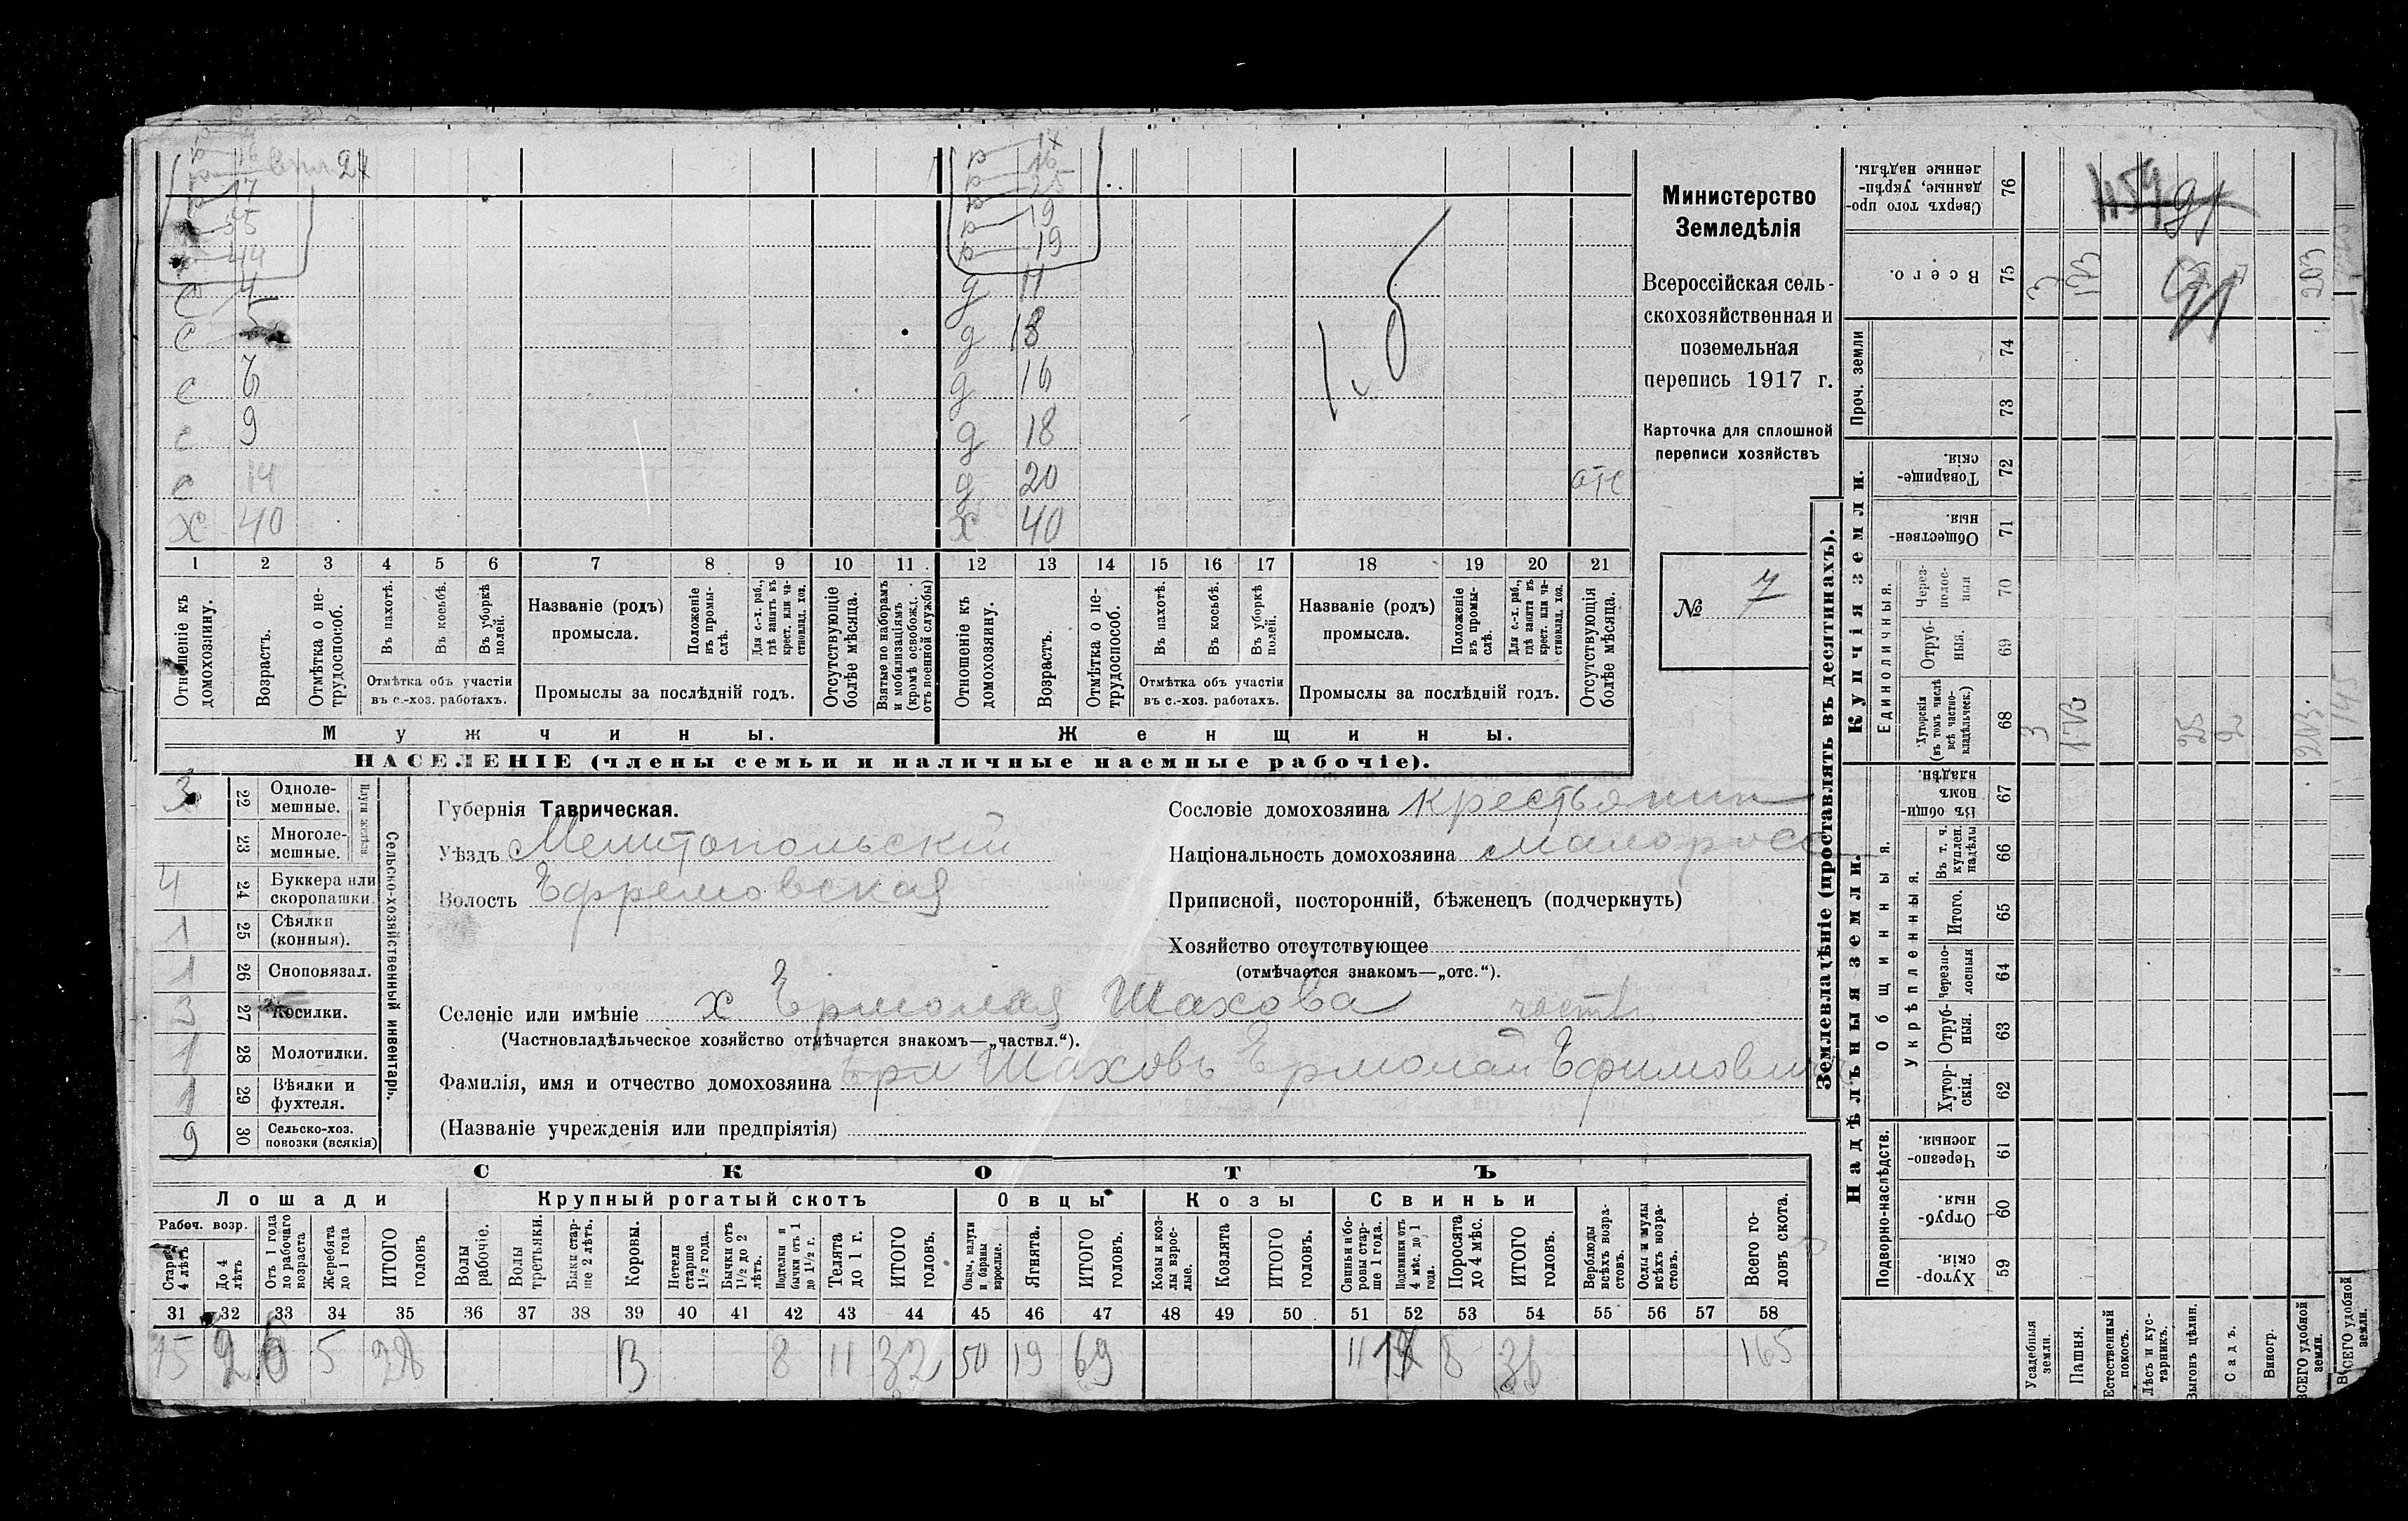 р 16
р 17
р 35
р 44
с 4
с 5
с 7
с 9
с 14
х 40
р 16
р 19
р 19
д 11
д 13
д 16
д 18
д 20 отс
х 40
1 2 3 4 5 6 7 8 9 10 11 12 13 14 15 16 17 18 19 20 21
Отношеніе къ домохозяину.
Возрастъ.
Отмѣтка о нетрудоспособ.
Въ пахотѣ.
Въ косьбѣ.
Въ уборкѣ полей.
Отмѣтка объ участіи въ с.-хоз. работахъ.
Названіе (родъ) промысла.
Положеніе въ промыслѣ.
Для с.-х. раб., гдѣ занятъ въ крест. или частновлад. хоз.
Промыслы за послѣдній годъ.
Отсутствующіе болѣе мѣсяца.
Взятые по наборамъ и мобилизаціямъ (кромѣ освобожд. отъ военной службы)
Отношеніе къ домохозяину.
Возрастъ.
Отмѣтка о нетрудоспособ.
Въ пахотѣ.
Въ косьбѣ.
Въ уборкѣ полей.
Отмѣтка объ участіи въ с.-хоз. работахъ.
Названіе (родъ) промысла.
Положеніе въ промыслѣ.
Для с.-х. раб., гдѣ занята въ крест. или частновлад. хоз.
Промыслы за послѣдній годъ.
Отсутствующія болѣе мѣсяца.
Мужчины. Женщины.
НАСЕЛЕНІЕ (члены семьи и наличные наемные рабочіе).
Министерство
Земледѣлія
Всероссійская сель-
скохозяйственная и
поземельная
перепись 1917 г.
Карточка для сплошной
переписи хозяйствъ
№ 7
3 22 Одноле-мешные.
23 Многоле-мешные.
4 24 Буккера или скоропашки.
1 25 Сѣялки (конныя).
1 26 Сноповязал.
3 27 Косилки.
1 28 Молотилки.
1 29 Вѣялки и фухтеля.
9 30 Сельско-хоз. повозки (всякія)
Сельско-хозяйственный инвентарь.
Губернія Таврическая.
Уѣздъ Мелитопольскій
Волость Ефремовская
Сословіе домохозяина крестьянин
Національность домохозяина малоросс
Приписной, посторонній, бѣженецъ (подчеркнуть)
Хозяйство отсутствующее
(отмѣчается знакомъ—„отс.“).
Селеніе или имѣніе х Ермолая Шахова частвл
(Частновладѣльческое хозяйство отмѣчается знакомъ—„частвл.“).
Фамилія, имя и отчество домохозяина Шаховъ Ермолай Ефимович
(Названіе учрежденія или предпріятія)
СКОТЪ
Лошади Крупный рогатый скотъ Овцы Козы Свиньи
Рабоч. возр.
Старше 4 лѣтъ
До 4 лѣтъ
Отъ 1 года до рабочаго возраста
Жеребята до 1 года
ИТОГО головъ
Волы рабочіе.
Волы третьяки.
Быки старше 2 лѣтъ.
Коровы.
Нетели старше 1½ года.
Бычки отъ 1½ до 2 лѣтъ.
Подтелки и бычки отъ 1 до 1½ г.
Телята до 1 г.
ИТОГО головъ.
Овцы, валухи и бараны взрослые.
Ягнята.
ИТОГО головъ.
Козы и козлы взрослые.
Козлята
ИТОГО головъ.
Свиньи и боровы старше 1 года.
Подсвинки отъ 4 мѣс. до 1 года.
Поросята до 4 мѣс.
ИТОГО головъ.
Верблюды всѣхъ возрастовъ.
Ослы и мулы всѣхъ возрастовъ.
Всего головъ скота.
31 32 33 34 35 36 37 38 39 40 41 42 43 44 45 46 47 48 49 50 51 52 53 54 55 56 57 58
15 2 6 5 28 13 8 11 32 50 19 69 11 17 8 36 165
Землевладѣніе (проставлять въ десятинахъ).
Надѣльныя земли. Купчія земли. Проч. земли
Подворно-наслѣдств.
Общинныя.
Укрѣпленныя.
Единоличныя.
Сверхъ того проданные, укрѣпленные надѣлы. 76
Всего. 75
74
73
Товарищескія. 72
Общественныя. 71
Черезполосныя 70
Отрубныя. 69
Хуторскія (въ томъ числѣ всѣ частновладѣльческ.) 68
Въ общинномъ владѣн. 67
Въ т. ч. куплен. надѣлы 66
Итого. 65
Черезполосныя 64
Отрубныя. 63
Хуторскія. 62
Черезполосныя. 61
Отрубныя. 60
Хуторскія. 59
Усадебныя земли.
Пашня.
Естественный покосъ.
Лѣсъ и кустарникъ.
Выгонъ цѣлин.
Садъ.
Виногр.
ВСЕГО удобной земли.
ВСЕГО удобной земли.
3 173 203
3 173 25 2 203.